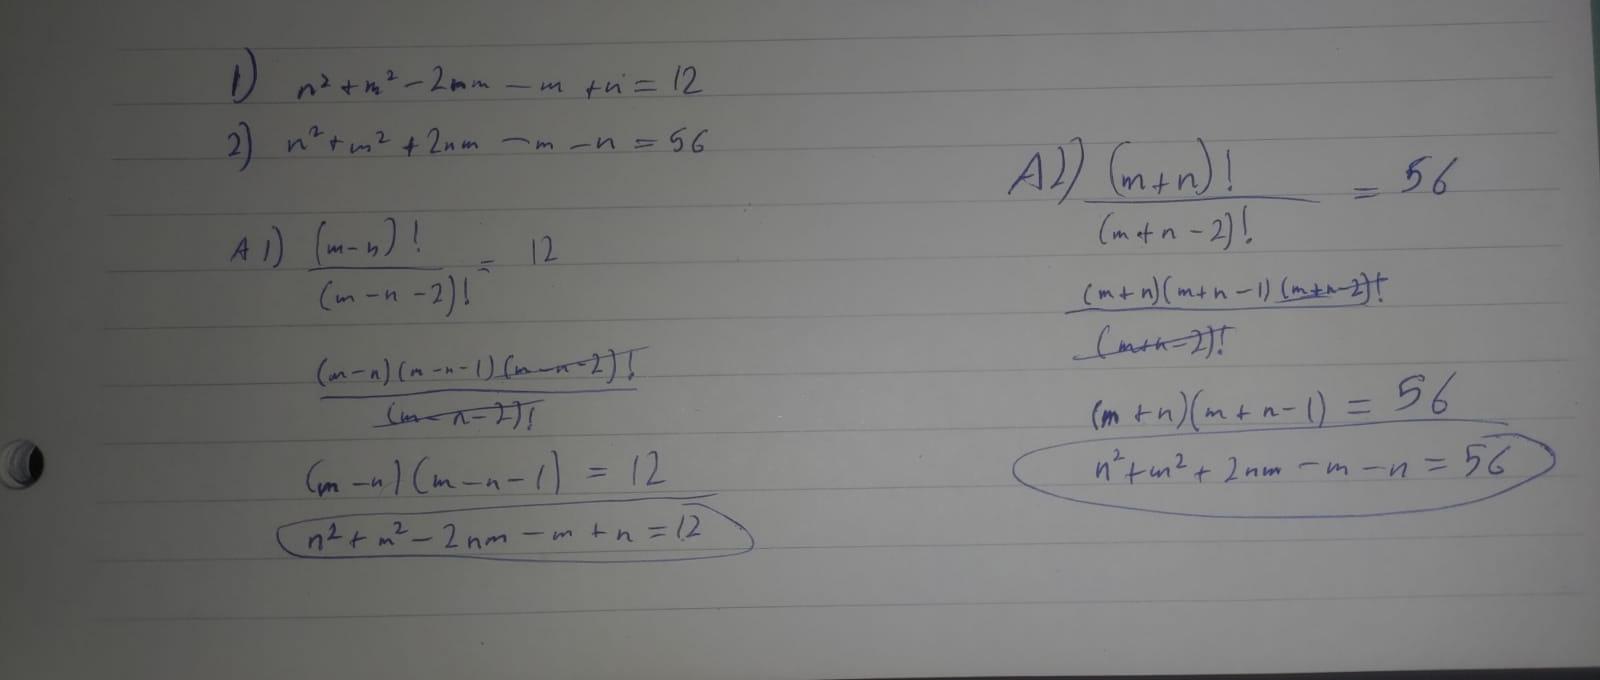 1) n² + m² - 2nm - m + n = 12
2) n² + m² + 2nm - m - n = 56
A 1) (m-n)! / (m-n-2)! = 12
(m-n)(m-n-1)(m-n-2)! / (m-n-2)!
(m-n)(m-n-1) = 12
n² + m² - 2nm - m + n = 12
A2) (m+n)! / (m+n-2)! = 56
(m+n)(m+n-1)(m+n-2)! / (m+n-2)!
(m+n)(m+n-1) = 56
n² + m² + 2nm - m - n = 56